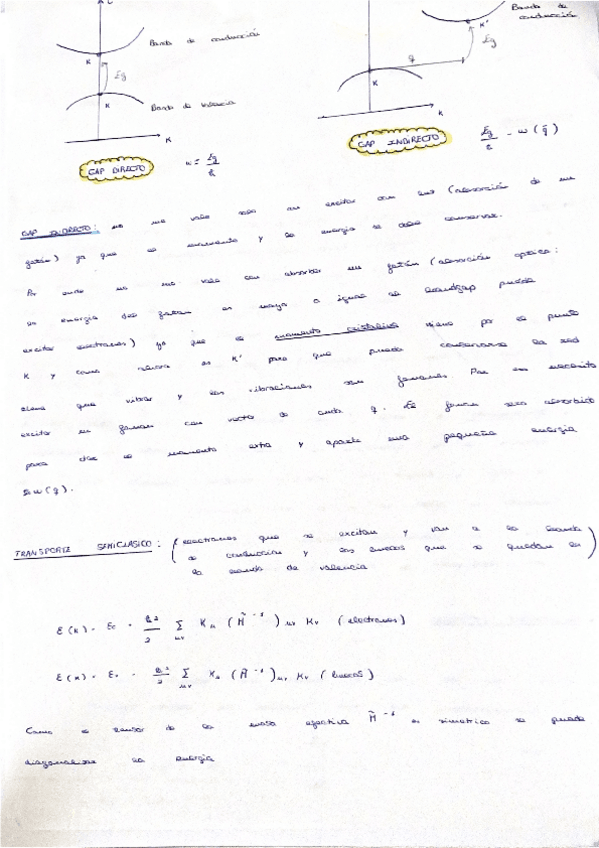 Banda de conducción
K
Eg
K
Banda de Valencia
K
GAP DIRECTO
w = Eg / ħ
Banda de conducción
K'
Eg
q
K
K
GAP INDIRECTO
Eg / ħ - w(q̄)
GAP INDIRECTO: no me vale solo con excitar con luz (absorción de un
fotón) ya que el momento y la energía se debe conservar.
Por ende no me vale con absorber un fotón (absorción óptica:
la energía del fotón es mayor o igual al bandgap puede
excitar electrones) ya que el momento cristalino viene por el punto
K y como ahora es K' para que pueda conservarse la red
tiene que vibrar y las vibraciones son fonones. Por eso necesito
excitar un fonon con vector de onda q. El fonon será absorbido
para dar el momento extra y aporta una pequeña energía
ħw(q).
TRANSPORTE SEMICLÁSICO: (electrones que se excitan y van a la banda
de conducción y los huecos que se quedan en
la banda de valencia)
E(K) = Ec + ħ²/2 Σμν Kμ (M̄⁻¹)μν Kν (electrones)
E(K) = Ev - ħ²/2 Σμν Kμ (M̄⁻¹)μν Kν (huecos)
Como el tensor de la masa efectiva M̄⁻¹ es simétrico se puede
diagonalizar la energía